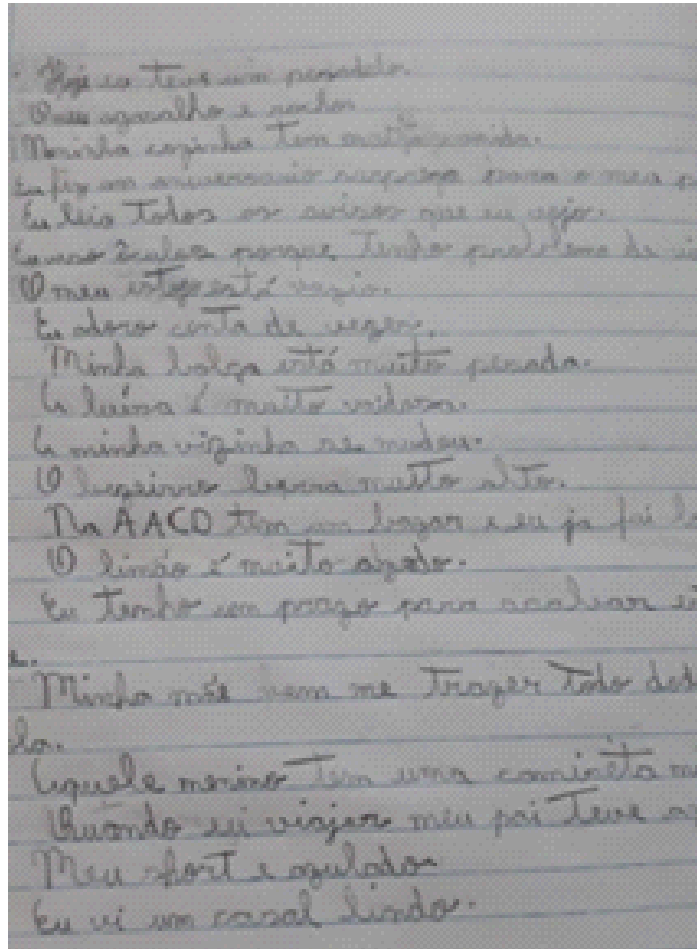 Hoje eu teve um pesadelo.
O meu agasalho e rocho
Minha cozinha tem muita comida.
Eu fiz um aniversario surpreza para o meu p
Eu leio todos os avisos que eu vejo.
Eu uso óculos porque tenho problema de vi
O meu estojo está vazio.
Eu adoro conta de vezes.
Minha bolça está muito pesada.
A luísa é muito vaidosa.
A minha vizinha se mudou.
O bezeirro berra muito alto.
Na AACD tem um bazar e eu ja fui l
O limão é muito azedo.
Eu tenho um prazo para acabar e
e.
Minha mãe vem me trazer todo
la.
Aquele menino tem uma camineta m
Quando eu viajei meu pai teve a
Meu short e azulado
Eu vi um casal lindo.